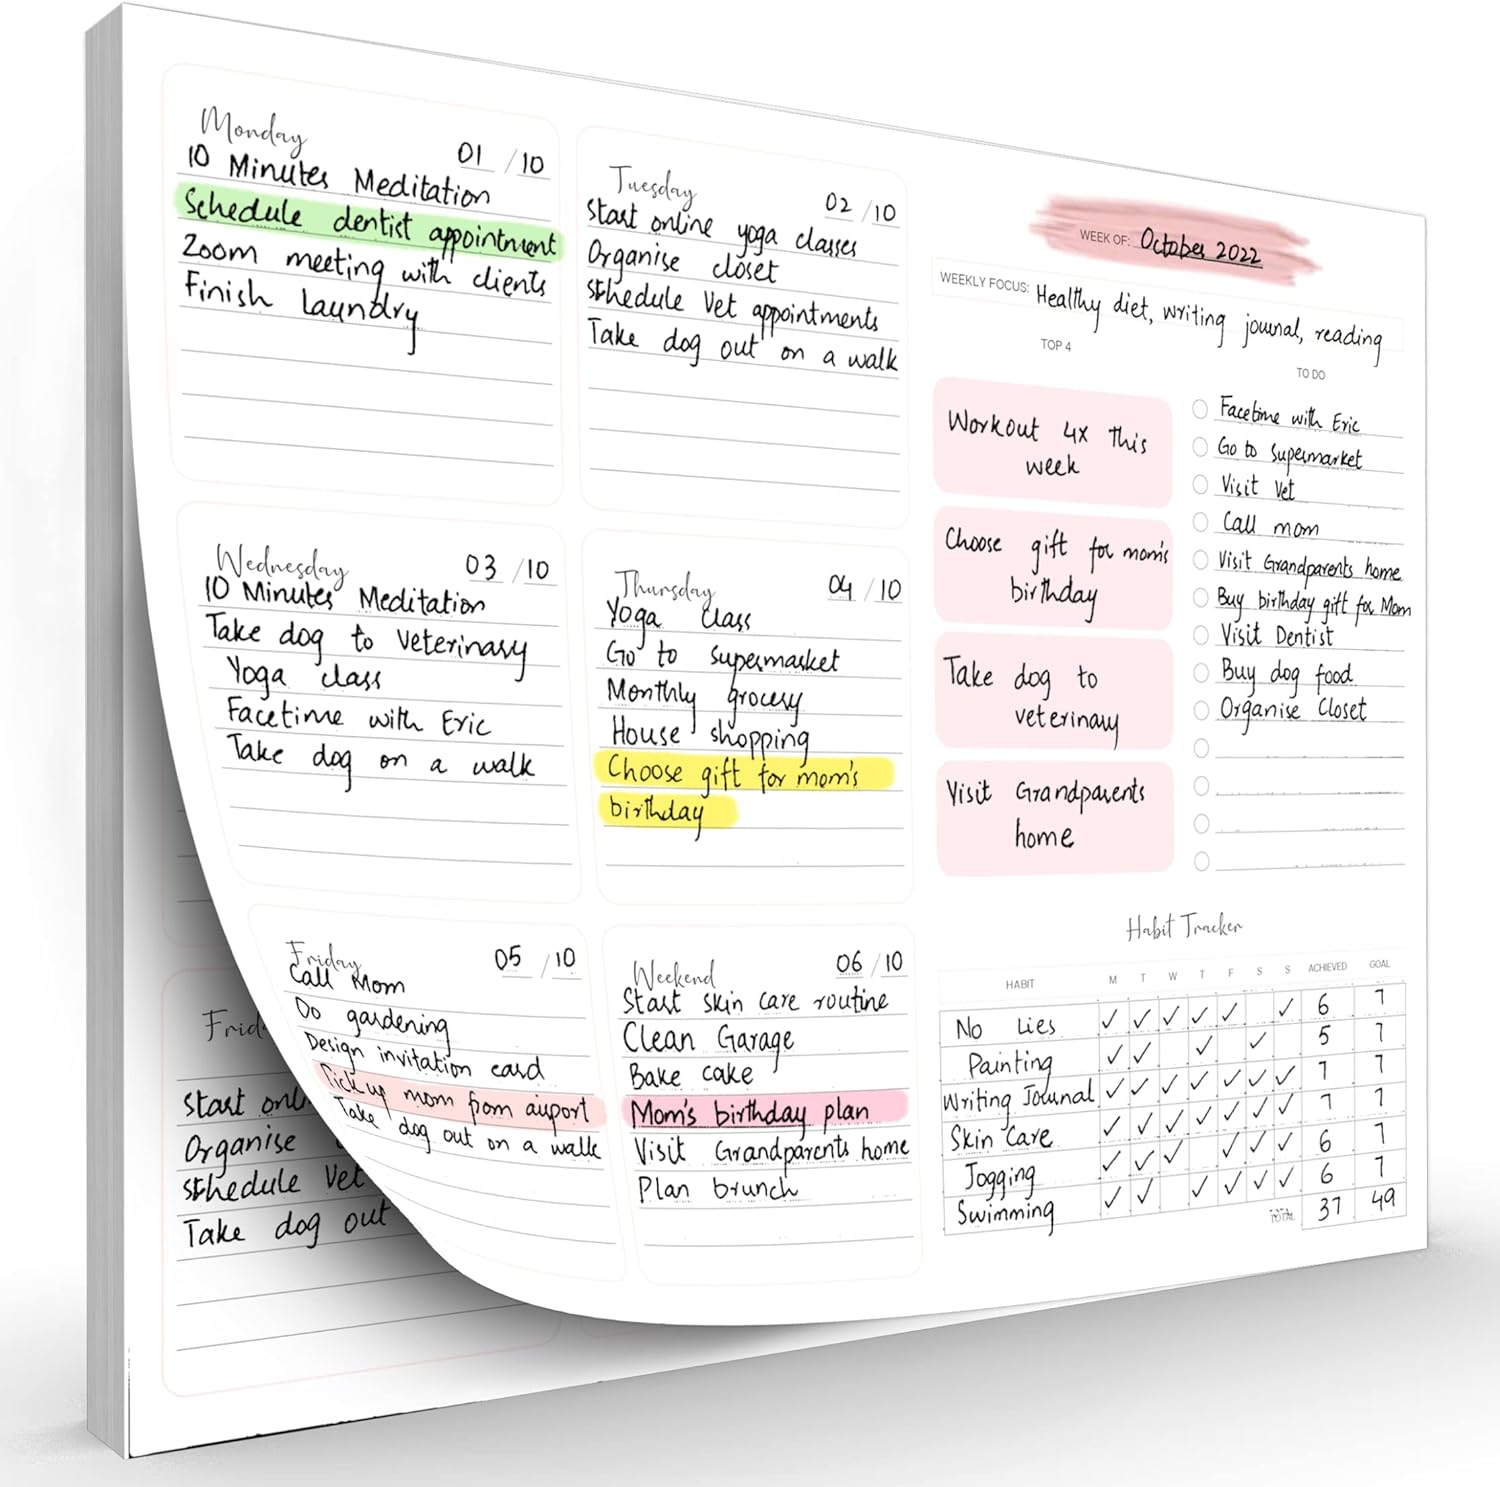 Monday 01 / 10
10 Minutes Meditation
Schedule dentist appointment
Zoom meeting with clients
Finish laundry
Tuesday 02 / 10
Start online yoga classes
Organise closet
schedule Vet appointments
Take dog out on a walk
Wednesday 03 / 10
10 Minutes Meditation
Take dog to veterinary
Yoga class
Facetime with Eric
Take dog on a walk
Thursday 04 / 10
Yoga class
Go to supermarket
Monthly grocery
House shopping
Choose gift for mom's
birthday
Friday 05 / 10
Call Mom
Do gardening
Design invitation card
Pick up mom from airport
Take dog out on a walk
Weekend 06 / 10
Start skin care routine
Clean Garage
Bake cake
Mom's birthday plan
Visit Grandparents home
Plan brunch
WEEK OF: October 2022
WEEKLY FOCUS: Healthy diet, writing journal, reading
TOP 4
Workout 4x this
week
Choose gift for mom's
birthday
Take dog to
veterinary
Visit Grandparents
home
TO DO
Facetime with Eric
Go to supermarket
Visit Vet
Call mom
Visit Grandparents home
Buy birthday gift for Mom
Visit Dentist
Buy dog food
Organise Closet
Habit Tracker
HABIT M T W T F S S ACHIEVED GOAL
No Lies 6 7
Painting 5 7
Writing Journal 7 7
Skin Care 7 7
Jogging 6 7
Swimming 6 7
TOTAL 37 49
Frid
Start onli
Organise
schedule Vet
Take dog out